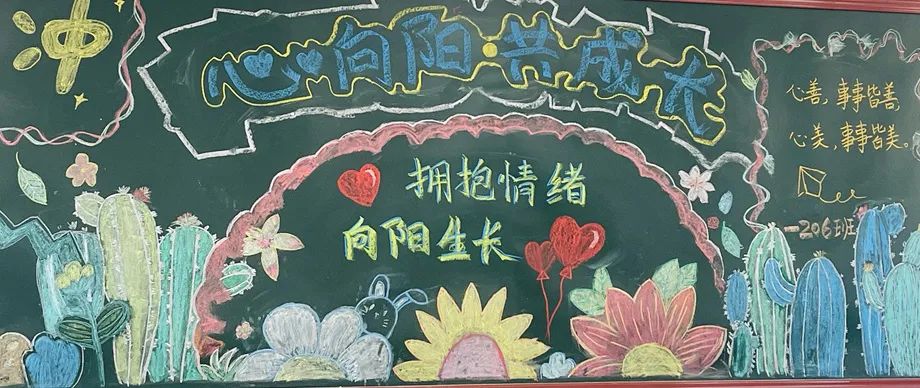 冲
心向阳·共成长
心善,事事皆善
心美,事事皆美。
拥抱情绪
向阳生长
—206班